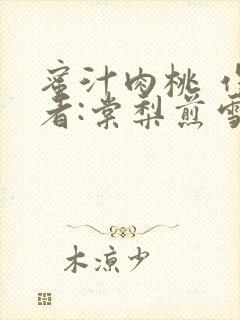 蜜汁肉桃
者:棠梨煎雪
木凉少